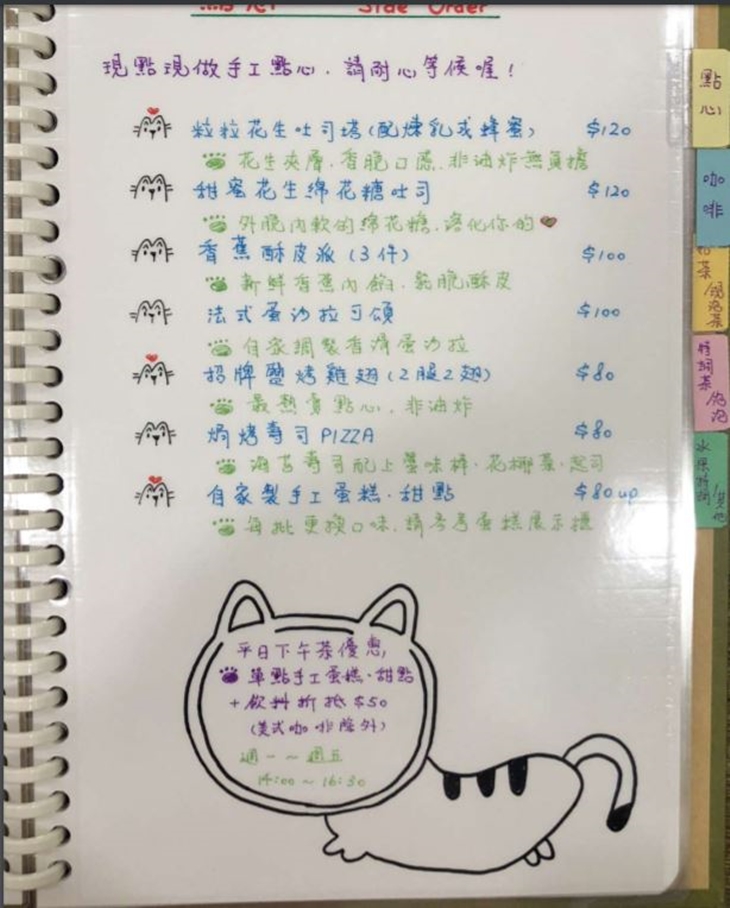 點心 Side Order
現點現做手工點心，請耐心等候喔！
粒粒花生吐司塔(配煉乳或蜂蜜) $120
花生夾層，香脆口感，非油炸無負擔
甜蜜花生綿花糖吐司 $120
外脆內軟的綿花糖，溶化你的
香蕉酥皮派(3件) $100
新鮮香蕉內餡，鬆脆酥皮
法式蛋沙拉可頌 $100
自家調製香滑蛋沙拉
招牌鹽烤雞翅(2腿2翅) $80
最熱賣點心，非油炸
焗烤壽司PIZZA $80
海苔壽司配上蟹味棒、花椰菜、起司
自家製手工蛋糕、甜點 $80up
每批更換口味，請參考蛋糕展示櫃
平日下午茶優惠，
單點手工蛋糕、甜點
+飲料折抵$50
(美式咖啡除外)
週一~週五
14:00~16:30
點心
咖啡
特調茶/泡泡